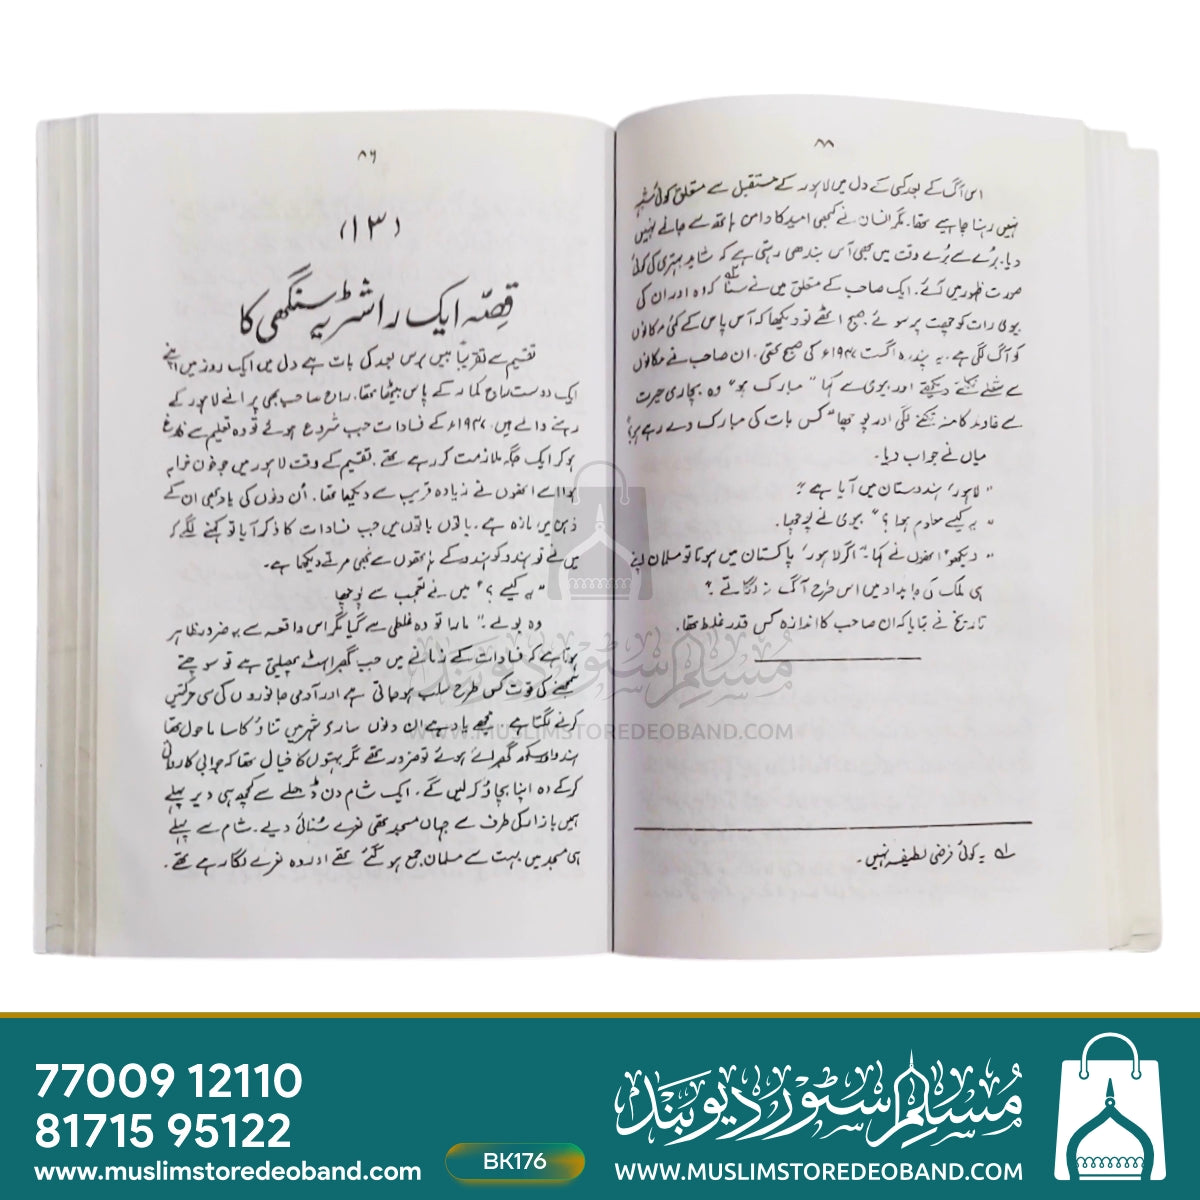 ۸۸
اس آگ کے بعد کسی کے دل میں لاہور کے مستقبل سے متعلق کوئی شبہ
نہیں رہنا چاہیے تھا۔ مگر انسان نے کبھی امید کا دامن ہاتھ سے جانے نہیں
دیا۔ بُرے سے بُرے وقت میں بھی آس بندھی رہتی ہے کہ شاید بہتری کی کوئی
صورت ظہور میں آئے۔ ایک صاحب کے متعلق میں نے سنا کہ وہ اور ان کی
بیوی رات کو چھت پر سوئے۔ صبح اٹھے تو دیکھا کہ آس پاس کے کئی مکانوں
کو آگ لگی ہے۔ یہ پندرہ اگست ۱۹۴۷ء کی صبح تھی۔ ان صاحب نے مکانوں
سے شعلے نکلتے دیکھے اور بیوی سے کہا "مبارک ہو" وہ بچاری حیرت
سے خاوند کا منہ تکنے لگی اور پوچھا "کس بات کی مبارک دے رہے ہو؟"
میاں نے جواب دیا۔
"لاہور' ہندوستان میں آیا ہے"۔
"یہ کیسے معلوم ہوا؟" بیوی نے پوچھا۔
"دیکھو" انھوں نے کہا۔ "اگر لاہور' پاکستان میں ہوتا تو مسلمان اپنے
ہی ملک کی جایداد میں اس طرح آگ نہ لگاتے"؟
تاریخ نے بتایا کہ ان صاحب کا اندازہ کس قدر غلط تھا۔
لے یہ کوئی فرضی لطیفہ نہیں۔
۸۶
(۱۳)
قصّہ ایک راشٹریہ سنگھی کا
تقسیم سے تقریباً بیس برس بعد کی بات ہے دل میں ایک روز میں اپنے
ایک دوست راج کمار کے پاس بیٹھا تھا۔ راج صاحب بھی پرانے لاہور کے
رہنے والے ہیں۔ ۱۹۴۷ء کے فسادات جب شروع ہوئے تو وہ تعلیم سے فارغ
ہو کر ایک جگہ ملازمت کر رہے تھے۔ تقسیم کے وقت لاہور میں جو خون خرابہ
ہوا اسے انھوں نے زیادہ قریب سے دیکھا تھا۔ اُن دنوں کی یاد ابھی ان کے
ذہن میں تازہ ہے۔ باتوں باتوں میں جب فسادات کا ذکر آیا تو کہنے لگے کہ
میں نے تو ہندو کو ہندو کے ہاتھوں سے بھی مرتے دیکھا ہے۔
"یہ کیسے؟" میں نے تعجب سے پوچھا
وہ بولے۔ "مارا تو وہ غلطی سے گیا مگر اس واقعہ سے یہ ضرور ظاہر
ہوتا ہے کہ فسادات کے زمانے میں جب گھبراہٹ پھیلتی ہے تو سوچنے
سمجھنے کی قوت کس طرح سلب ہو جاتی ہے اور آدمی جانوروں کی سی حرکتیں
کرنے لگتا ہے۔ مجھے یاد ہے ان دنوں ساری شہر میں تناؤ کا سا ماحول تھا
ہندو اور سکھ گھبرائے ہوئے تو ضرور تھے مگر بہتوں کا خیال تھا کہ جوابی کاروائی
کر کے وہ اپنا بچاؤ کر لیں گے۔ ایک شام دن ڈھلے سے کچھ ہی دیر پہلے
ہمیں بازار کی طرف سے جہاں مسجد تھی نعرے سُنائی دیے۔ شام سے پہلے
ہی مسجد میں بہت سے مسلمان جمع ہو گئے تھے اور وہ نعرے لگا رہے تھے۔
مسلم سٹور دیوبند
WWW.MUSLIMSTOREDEOBAND.COM
77009 12110
81715 95122
www.muslimstoredeoband.com
BK176
مسلم سٹور دیوبند
WWW.MUSLIMSTOREDEOBAND.COM